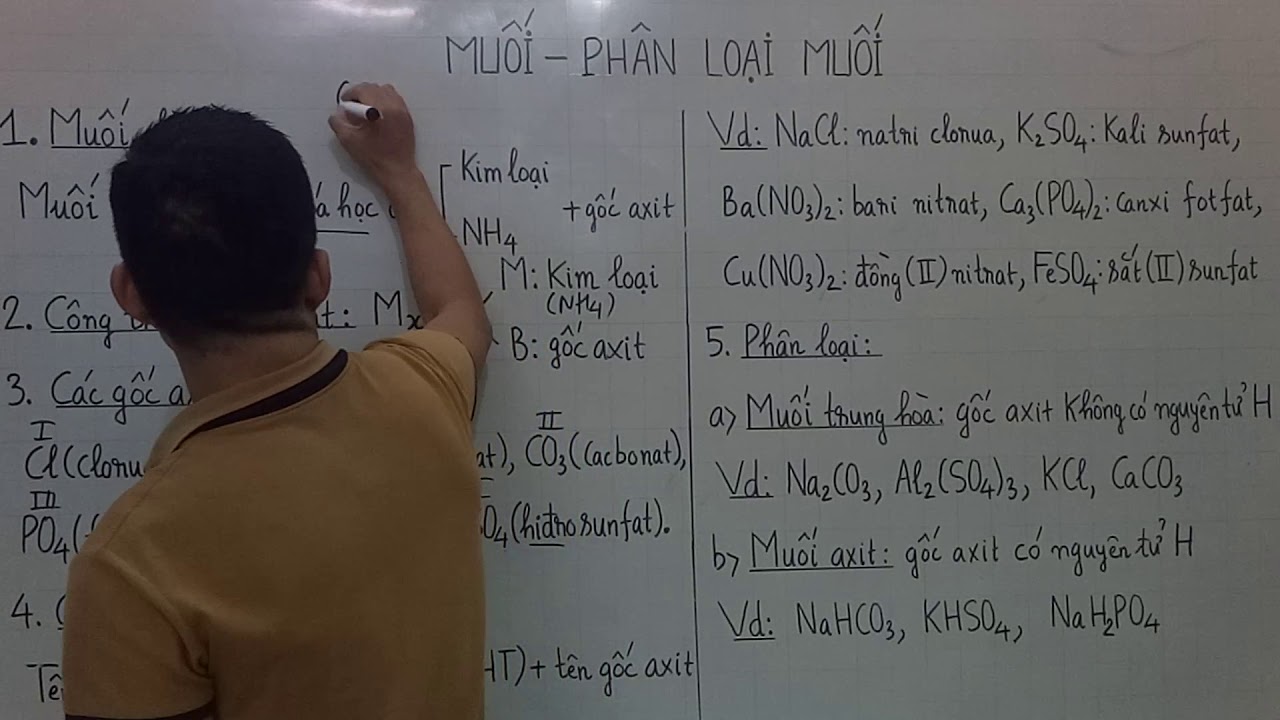 MUỐI – PHÂN LOẠI MUỐI
1. Muối
Muối á học
Kim loại
+ gốc axit
NH4
2. Công t: Mx
M: Kim loại
(NH4)
B: gốc axit
3. Các gốc a
I II
Cl (clonu at), CO3 (cacbonat),
III
PO4 ( O4 (hiđrosunfat).
4.
Tê HT) + tên gốc axit
Vd: NaCl: natri clorua, K2SO4: Kali sunfat,
Ba(NO3)2: bari nitrat, Ca3(PO4)2: canxi fotfat,
Cu(NO3)2: đồng (II) nitrat, FeSO4: sắt (II) sunfat
5. Phân loại:
a) Muối trung hòa: gốc axit Không có nguyên tử H
Vd: Na2CO3, Al2(SO4)3, KCl, CaCO3
b) Muối axit: gốc axit có nguyên tử H
Vd: NaHCO3, KHSO4, NaH2PO4